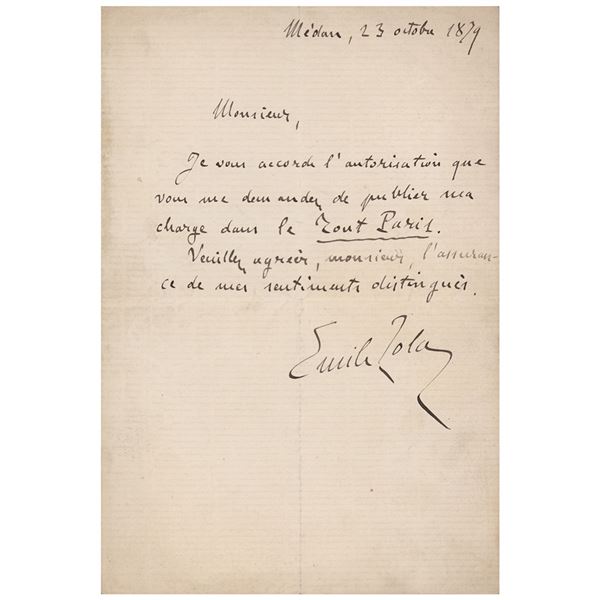 Médan, 23 octobre 1879
Monsieur,
Je vous accorde l'autorisation que
vous me demandez de publier ma
charge dans le Tout Paris.
Veuillez agréer, monsieur, l'assuran-
ce de mes sentiments distingués.
Emile Zola